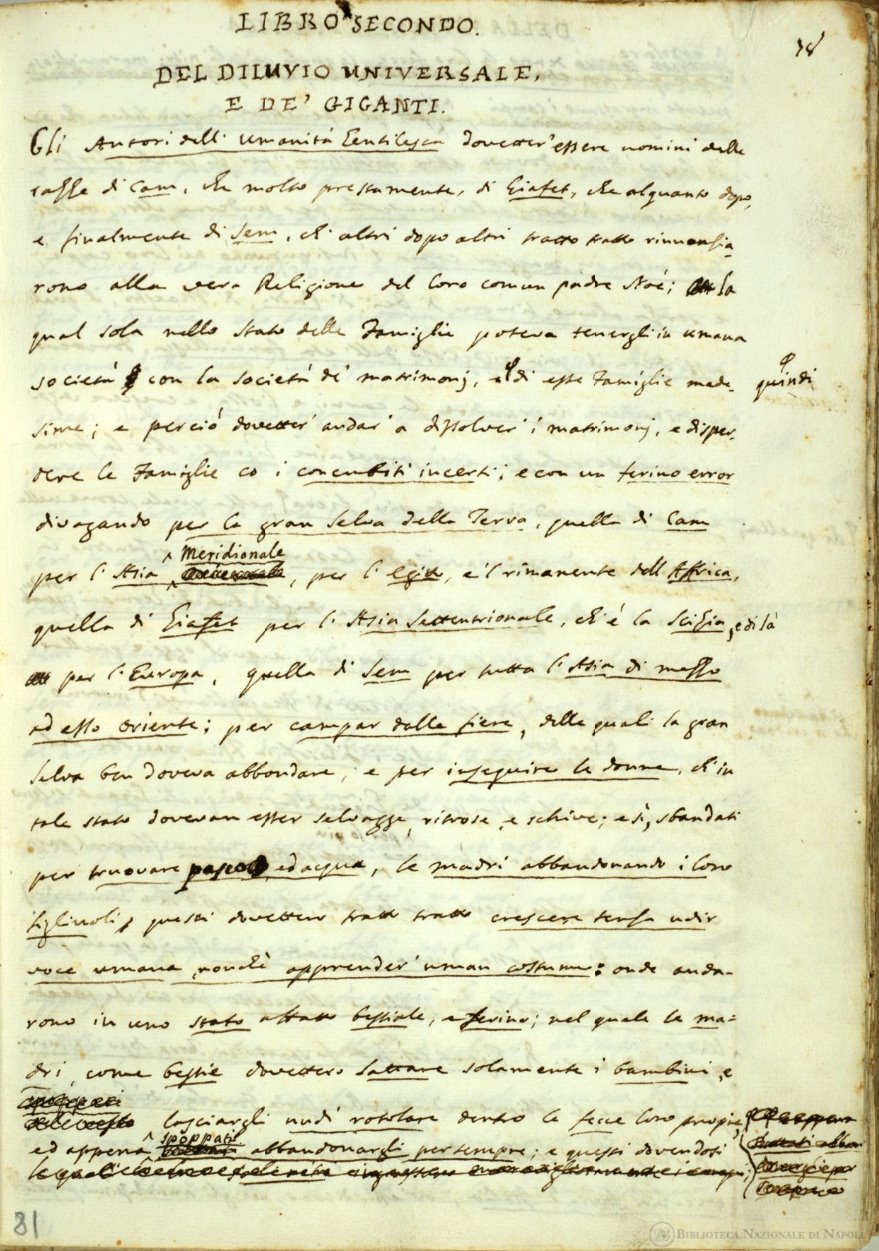 LIBRO SECONDO.
78
DEL DILUVIO UNIVERSALE,
E DE' GIGANTI.
Gli Autori dell' Umanità Gentilesca dovetter' essere uomini delle
razze di Cam, che molto prestamente, di Giafet, che alquanto dopo,
e finalmente di Sem, ch' altri dopo altri tratto tratto rinunzia-
rono alla vera Religione del loro comun padre Noè; la
qual sola nello stato delle Famiglie poteva tenergli in umana
società con la società de' matrimonj, e di esse Famiglie mede- quindi
sime; e perciò dovetter' andar' a dissolver' i matrimonj, e disper-
dere le Famiglie co i concubiti incerti; e con un ferino error
divagando per la gran Selva della Terra, quella di Cam
meridionale
per l' Asia , per l' Egitto, e 'l rimanente dell' Affrica,
quella di Giafet per l' Asia Settentrionale, ch' è la Scizia, e di là
per l' Europa, quella di Sem per tutta l' Asia di mezzo
ad esso Oriente; per campar dalle fiere, delle quali la gran
Selva ben doveva abbondare, e per inseguire le donne, ch' in
tale stato dovevan esser selvagge, ritrose, e schive; e sì, sbandati
per truovare pascolo, ed acqua, le madri abbandonando i loro
figliuoli, questi dovettero tratto tratto crescere senza udir
voce umana, nonchè apprender' uman costume: onde anda-
rono in uno stato affatto bestiale, e ferino; nel quale le ma-
dri, come bestie dovettero lattare solamente i bambini, e
lasciargli nudi rotolare dentro le fecce loro propie,
spoppati
ed appena abbandonargli per sempre; e questi dovendosi
le quali
81
BIBLIOTECA NAZIONALE DI NAPOLI